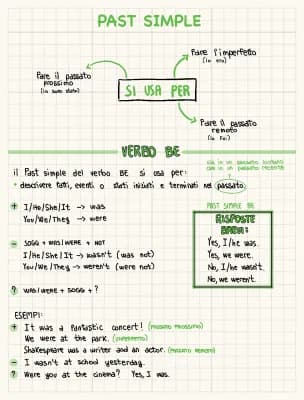 PAST SIMPLE
Fare l'imperfetto
(io ero)
Fare il passato
prossimo
(io sono stato)
SI USA PER
Fare il passato
remoto
(io fui)
VERBO BE
sia in un passato lontano
che in un passato recente
il Past simple del verbo BE si usa per:
• descrivere fatti, eventi o stati iniziati e terminati nel passato
+ I/He/She/It → was
You/We/They → were
- SOGG + WAS/WERE + NOT
I/He/She/It → wasn't (was not)
You/We/They → weren't (were not)
? WAS/WERE + SOGG + ?
PAST SIMPLE BE
RISPOSTE
Yes, I/he was.
Yes, we were.
No, I/he wasn't.
No, we weren't.
ESEMPI:
+ It was a fantastic concert! (PASSATO PROSSIMO)
We were at the park. (IMPERFETTO)
Shakespeare was a writer and an actor. (PASSATO REMOTO)
- I wasn't at school yesterday.
? Were you at the cinema? Yes, I was.